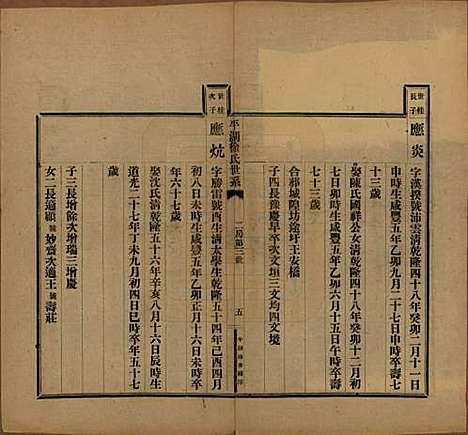 世桂
長子
應炎
字漢撲號沛雲清乾隆四十八年癸卯二月十一日
申時生咸豐五年乙卯九月二十七日申時卒壽七
十三歲
娶陳氏國祥公女清乾隆四十八年癸卯十二月初
七日卯時生咸豐五年乙卯六月十五日午時卒壽
七十三歲
合葬城隍坊途圩王安橋
子四長豫慶早卒次文垣三文均四文境
平湖徐氏世系
五
世桂
次子
應炕
字勝雷號酉生清太學生乾隆五十四年己酉四月
初八日未時生咸豐五年乙卯正月十六日未時卒
年六十七歲
娶沈氏清乾隆五十六年辛亥八月十六日辰時生
道光二十七年丁未九月初四日巳時卒年五十七
歲
子三長增餘次增瑞三增慶
女二長適顧號妙齋次適王號壽莊